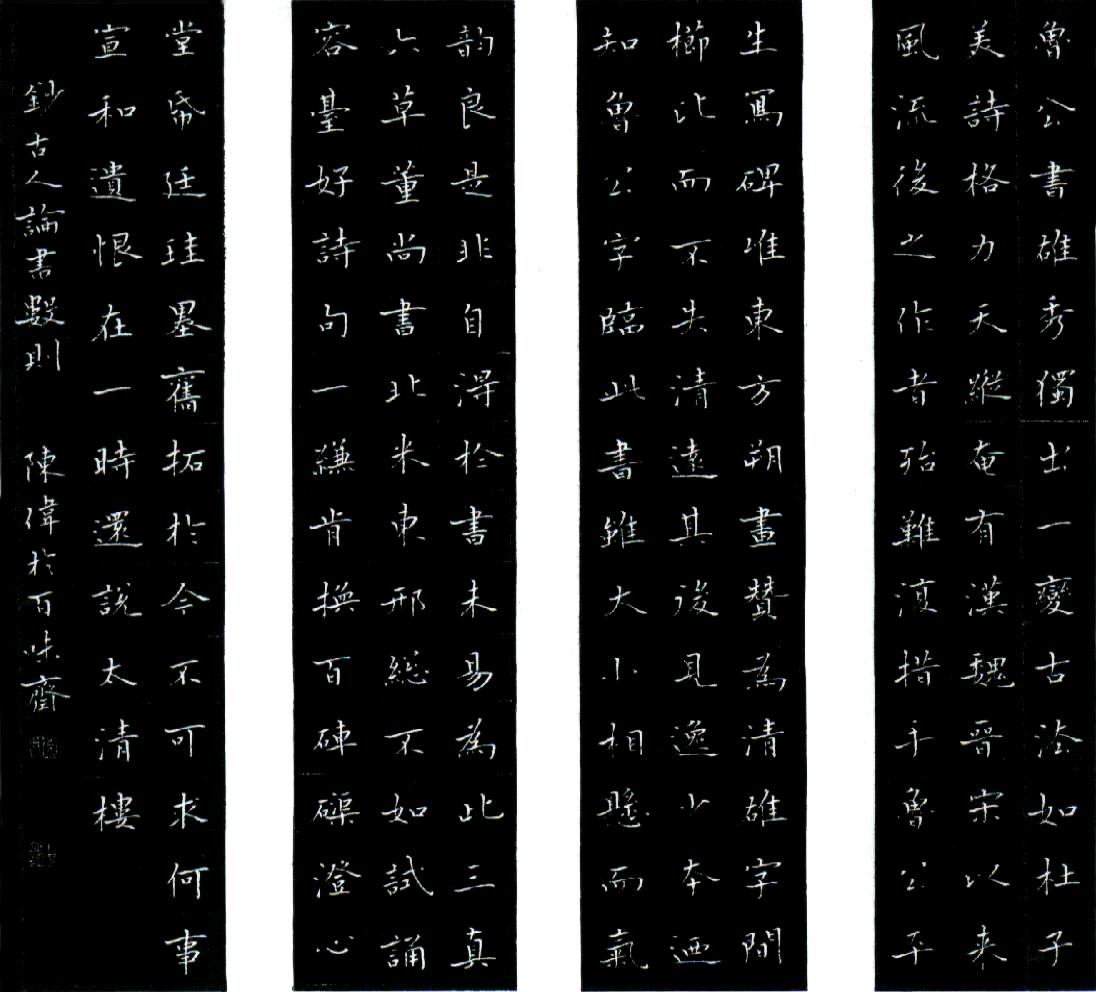 魯公書雄秀獨出一變古法如杜子
美詩格力天縱奄有漢魏晉宋以来
風流後之作者殆難複措手魯公平
生寫碑唯東方朔畫贊為清雄字間
櫛比而不失清遠其後見逸少本乃
知魯公字字臨此書雖大小相懸而氣
韵良是非自得於書未易為此三真
六草董尚書北米東邢總不如試誦
容臺好詩句一縑肯換百硨磲澄心
堂帋廷珪墨舊拓於今不可求何事
宣和遺恨在一時還說太清樓
鈔古人論書數則 陳偉於百味齋